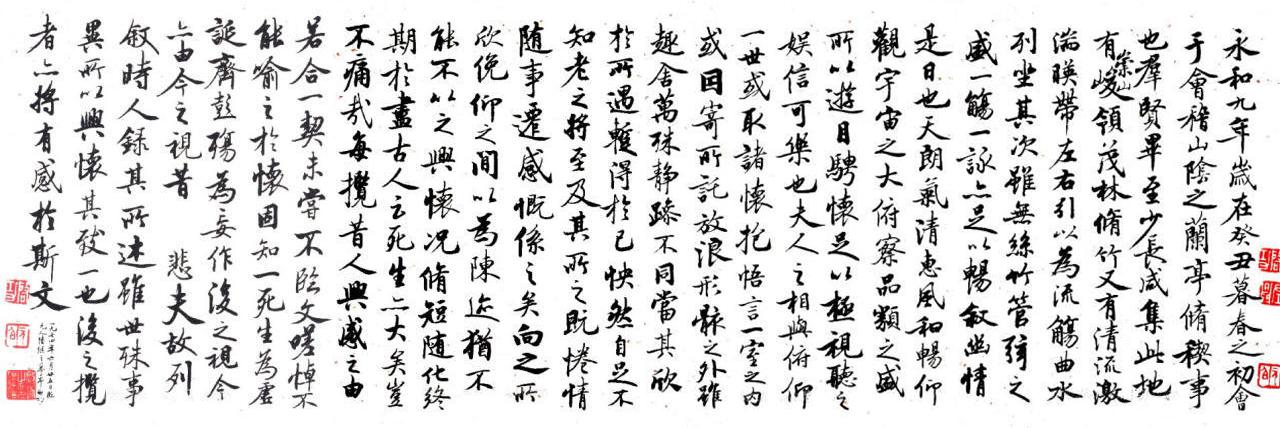 永和九年歲在癸丑暮春之初會
于會稽山陰之蘭亭脩稧事
也群賢畢至少長咸集此地
有崇山峻領茂林脩竹又有清流激
湍暎帶左右引以為流觴曲水
列坐其次雖無絲竹管弦之
盛一觴一詠亦足以暢敘幽情
是日也天朗氣清惠風和暢仰
觀宇宙之大俯察品類之盛
所以遊目騁懷足以極視聽之
娛信可樂也夫人之相與俯仰
一世或取諸懷抱悟言室之内
或因寄所託放浪形骸之外雖
趣舍萬殊静躁不同當其欣
於所遇蹔得於己怏然自足不
知老之將至及其所之既惓情
随事遷感慨係之矣向之所
欣俛仰之間以為陳迹猶不
能不以之興懷況脩短随化終
期於盡古人云死生亦大矣豈
不痛哉每攬昔人興感之由
若合一契未嘗不臨文嗟悼不
能喻之於懷固知一死生為虛
誕齊彭殤為妄作後之視今
亦由今之視昔 悲夫故列
敘時人録其所述雖世殊事
異所以興懷其致一也後之攬
者亦將有感於斯文